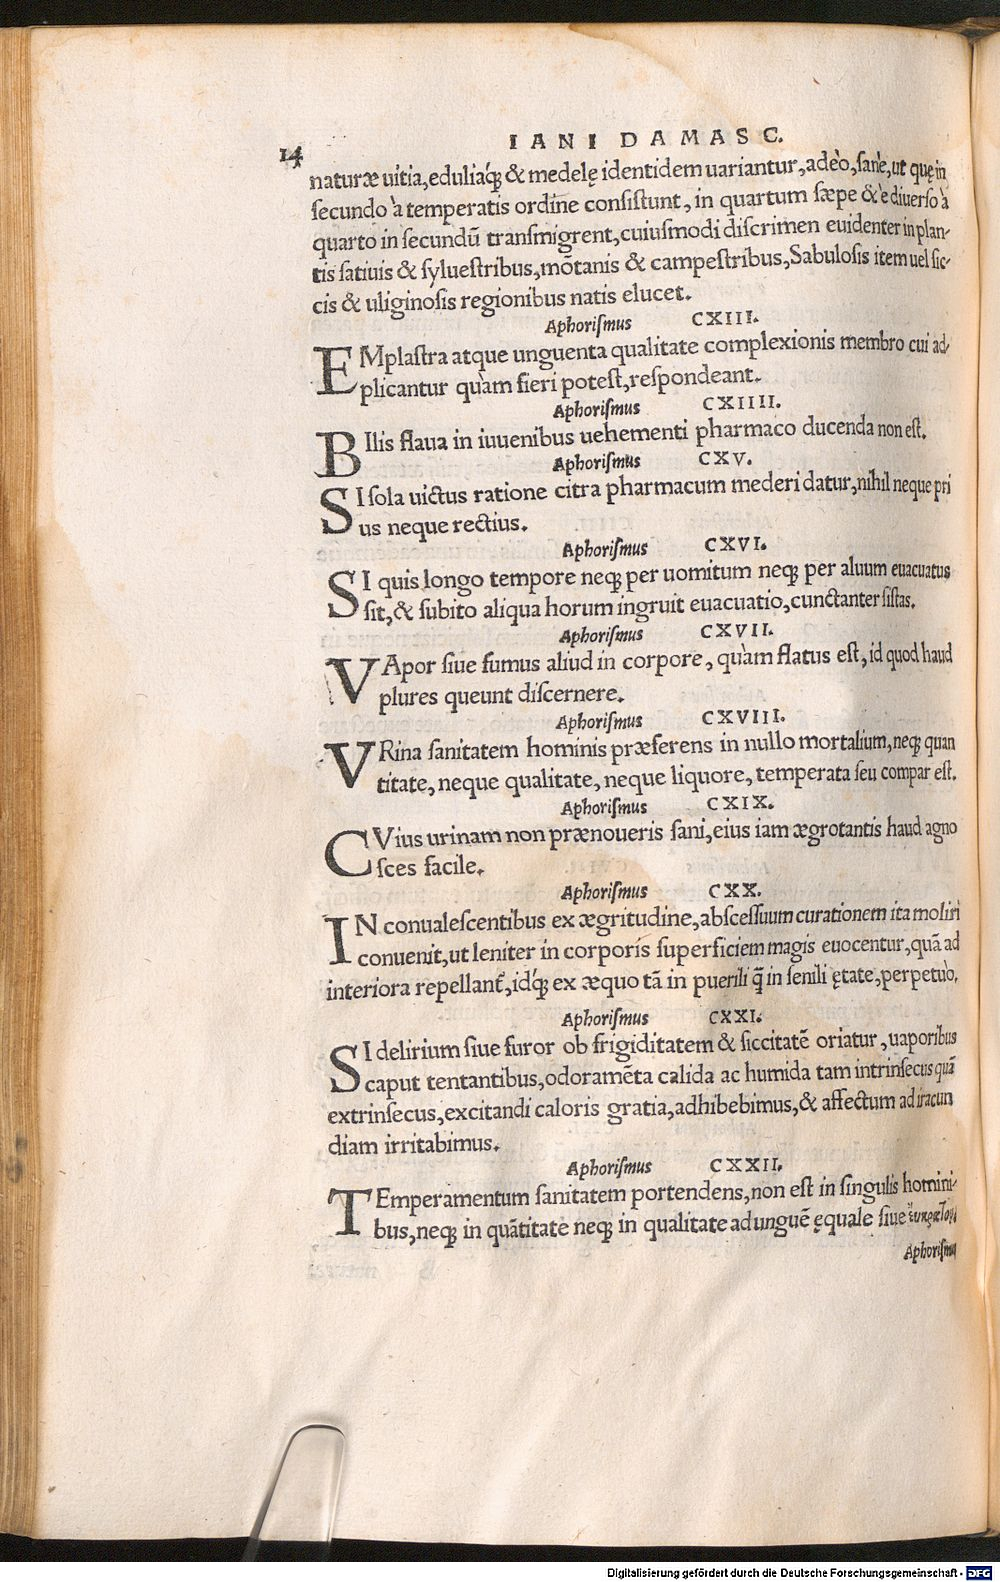 14 IANI DAMASC.
naturæ uitia, eduliaq́; & medelę identidem uariantur, adeò, sanè, ut quę in
secundo à temperatis ordine consistunt, in quartum sæpe & è diuerso à
quarto in secundū transmigrent, cuiusmodi discrimen euidenter in plan-
tis satiuis & syluestribus, mõtanis & campestribus, Sabulosis item uel sic-
cis & uliginosis regionibus natis elucet.
Aphorismus CXIII.
EMplastra atque unguenta qualitate complexionis membro cui ad-
plicantur quàm fieri potest, respondeant.
Aphorismus CXIIII.
BIlis flaua in iuuenibus uehementi pharmaco ducenda non est.
Aphorismus CXV.
SI sola uictus ratione citra pharmacum mederi datur, nihil neque pri
us neque rectius.
Aphorismus CXVI.
SI quis longo tempore neq; per uomitum neq; per aluum euacuatus
sit, & subito aliqua horum ingruit euacuatio, cunctanter sistas.
Aphorismus CXVII.
VApor siue fumus aliud in corpore, quàm flatus est, id quod haud
plures queunt discernere.
Aphorismus CXVIII.
VRina sanitatem hominis præferens in nullo mortalium, neq; quan
titate, neque qualitate, neque liquore, temperata seu compar est.
Aphorismus CXIX.
CVius urinam non prænoueris sani, eius iam ægrotantis haud agno
sces facile.
Aphorismus CXX.
IN conualescentibus ex ægritudine, abscessuum curationem ita moliri
conuenit, ut leniter in corporis superficiem magis euocentur, quã ad
interiora repellant̃, idq́; ex æquo tã in puerili q̃ in senili ętate, perpetuò.
Aphorismus CXXI.
SI delirium siue furor ob frigiditatem & siccitatē oriatur, uaporibus
caput tentantibus, odoramēta calida ac humida tam intrinsecus quã
extrinsecus, excitandi caloris gratia, adhibebimus, & affectum ad iracun
diam irritabimus.
Aphorismus CXXII.
TEmperamentum sanitatem portendens, non est in singulis homini-
bus, neq; in quãtitate neq; in qualitate ad unguē ęquale siue
Aphorismus
Digitalisierung gefördert durch die Deutsche Forschungsgemeinschaft - DFG